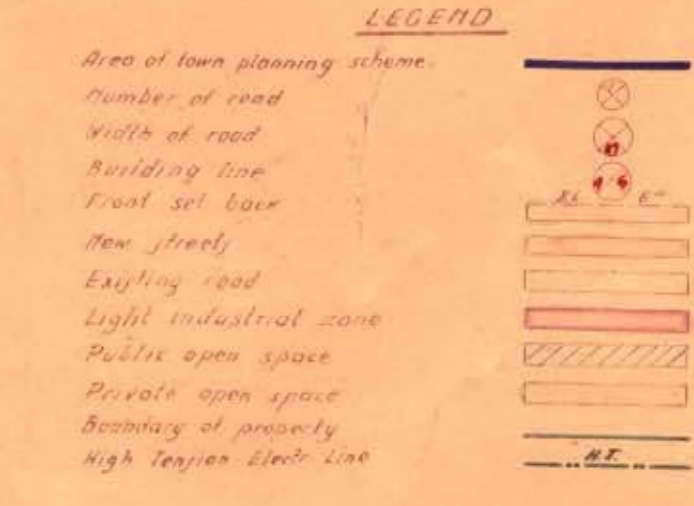 LEGEND
Area of town planning scheme.
Number of road
Width of road
Building line
Front set back
New streets
Existing road
Light industrial zone
Public open space
Private open space
Boundary of property
High Tension Electr Line H.T.